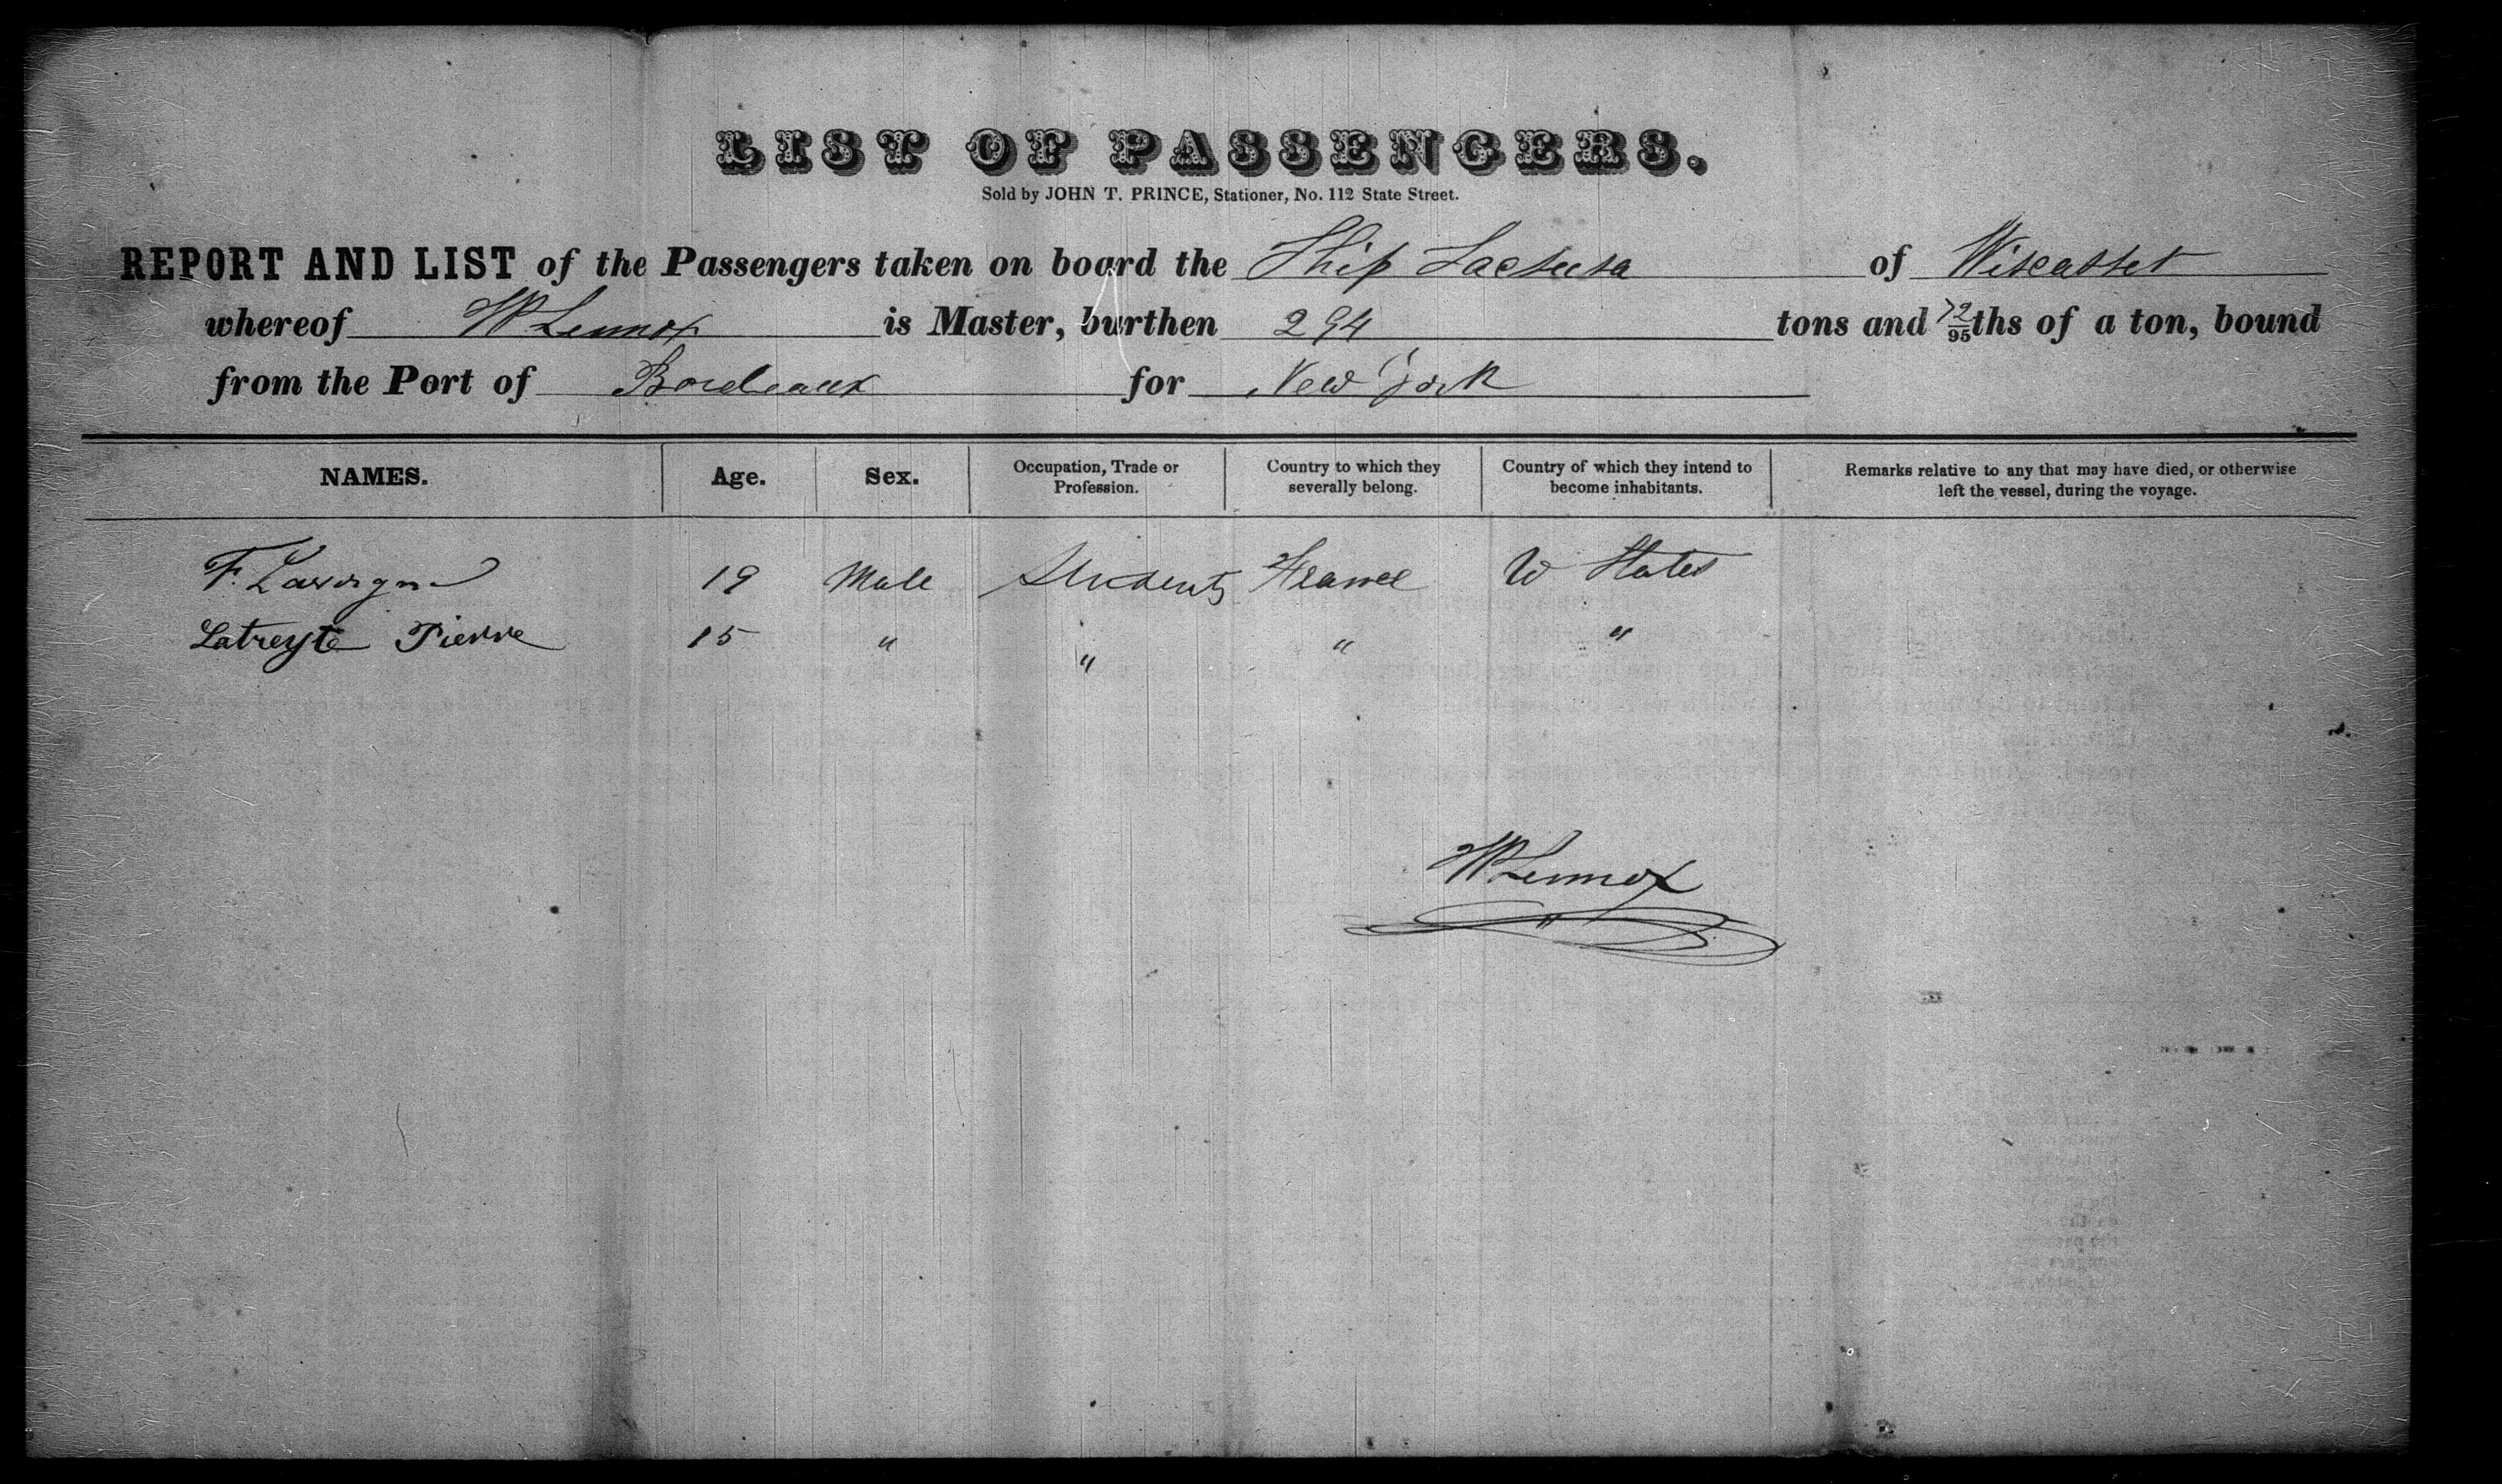 LIST OF PASSENGERS.
Sold by JOHN T. PRINCE, Stationer, No. 112 State Street.
REPORT AND LIST of the Passengers taken on board the Ship of Wiscasset
whereof W Lennox is Master, burthen 294 tons and 72/95ths of a ton, bound
from the Port of Bordeaux for New York
NAMES. Age. Sex. Occupation, Trade or Profession. Country to which they severally belong. Country of which they intend to become inhabitants. Remarks relative to any that may have died, or otherwise left the vessel, during the voyage.
F. 19 Male Student France U States
Latreyte Pierre 15 " " " "
W Lennox